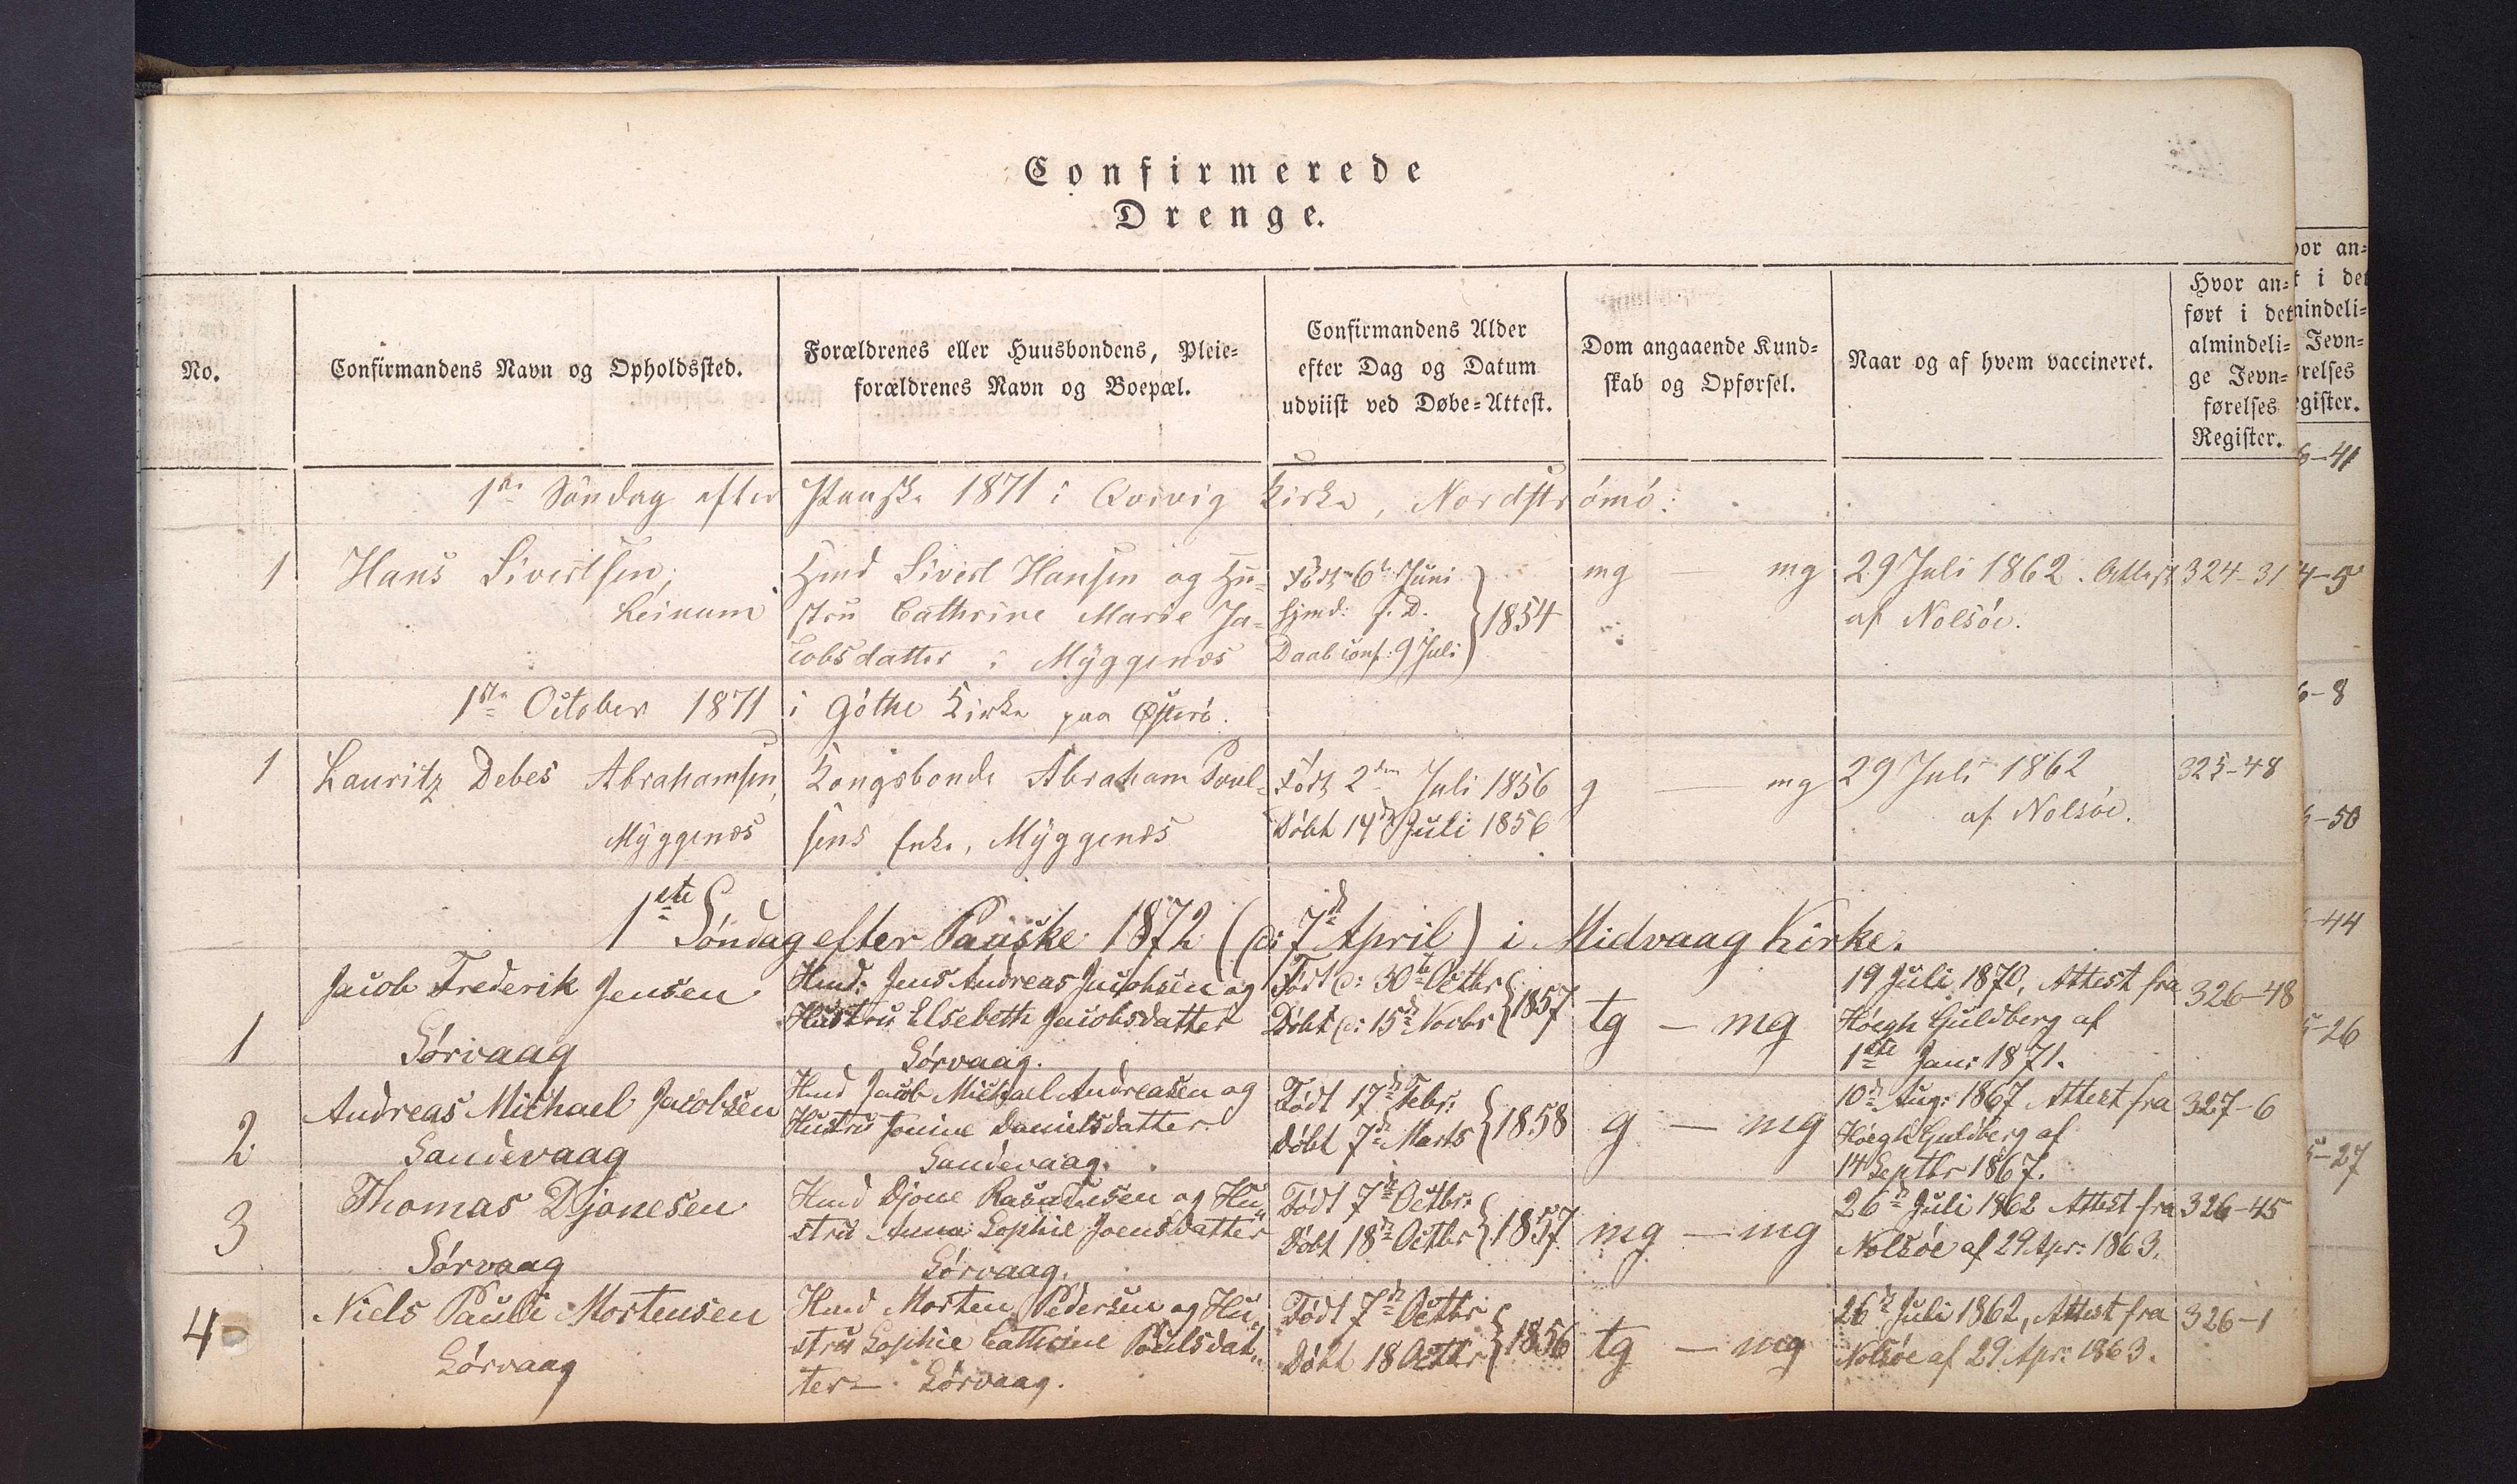 Confirmerede
Drenge.
No.
Confirmandens Navn og Opholdssted.
Forældrenes eller Huusbondens, Pleie=
forældrenes Navn og Boepæl.
Confirmandens Alder
efter Dag og Datum
udviist ved Døbe=Attest.
Dom angaaende Kund=
skab og Opførsel.
Naar og af hvem vaccineret.
Hvor an=
ført i det
almindeli=
ge Jevn=
førelses
Register.
1ste Søndag efter Paaske 1871 i Qvivig Kirke, Nordströmö:
1
Hans Sivertsen,
Leinum
Hmd Sivert Hansen og Hu=
stru Cathrine Marie Ja=
cobsdatter i Myggenæs
Født 6te Juni
hjmd: s. D.
Daab conf: 9 Juli
1854
mg — mg
29 Juli 1862. Attest
af Nolsöe.
324-31
1ste October 1871 i Göthe Kirke paa Østerö.
1
Lauritz Debes Abrahamsen,
Myggenæs
Kongsbonde Abraham Poul=
sens Enke, Myggenæs
Født 2den Juli 1856
Døbt 14d Juli 1856
g — mg
29 Juli 1862
af Nolsöe.
325-48
1ste Søndag efter Paaske 1872 (d: 7d April) i Midvaag Kirke.
1
Jacob Frederik Jensen
Sörvaag
Hmd: Jens Andreas Jacobsen og
Hustru Elsebeth Jacobsdatter
Sörvaag.
Født d: 30te Octbr
Døbt d: 15d Novbr
1857
tg — mg
19 Juli 1870, Attest fra
Höegh Guldberg af
1ste Jan: 1871.
326-48
2
Andreas Michael Jacobsen
Sandevaag
Hmd Jacob Michael Andreasen og
Hustru Jonine Danielsdatter
Sandevaag.
Født 17d Febr:
Døbt 7d Marts
1858
g — mg
10d Aug: 1867 Attest fra
Höegh Guldberg af
14 Septbr 1867.
327-6
3
Thomas Djonesen
Sörvaag
Hmd Djone Rasmusen og Hu„
stru Anna Sophie Joensdatter
Sörvaag.
Født 7d Octbr:
Døbt 18d Octbr
1857
mg — mg
26d Juli 1862 Attest fra
Nolsöe af 29 Apr: 1863.
326-45
4
Niels Pauli Mortensen
Sörvaag
Hmd Morten Pedersen og Hu„
stru Sophie Cathrine Poulsdat„
ter — Sörvaag.
Født 7d Octbr
Døbt 18 Octbr
1856
tg — mg
26d Juli 1862, Attest fra
Nolsöe af 29 Apr: 1863.
326-1